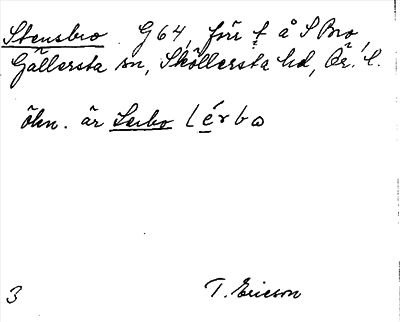 Stensbro G64, förr t å S Bro,
Gällersta sn, Sköllersta hd, Ör. l.
ökn. är Lerbo lérbω
3 T. Ericson